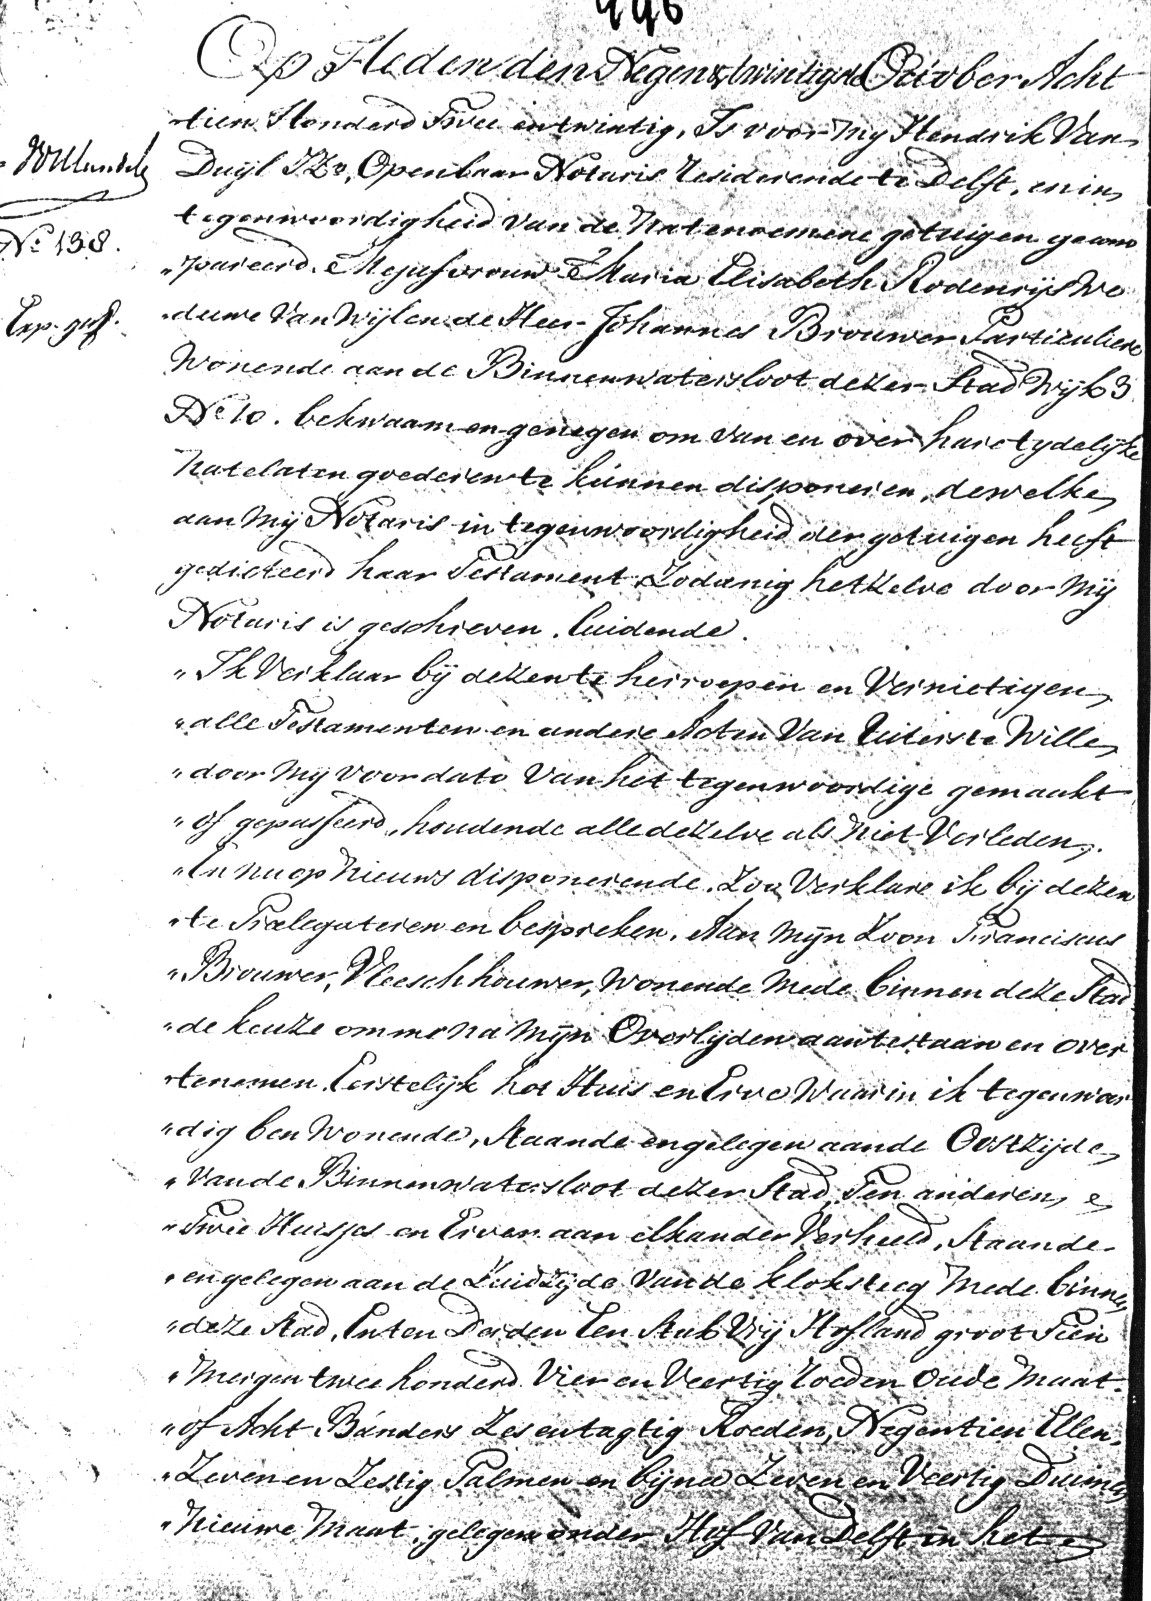 996
Op Heden den Negen & twintigste October Acht
tien Honderd Twee en twintig, Is voor My Hendrik Van
Duyl JZn, Openbaar Notaris Residerende te Delft, en in
No 138.
tegenwoordigheid van de Natenoemene getuigen gecom
"pareerd. Mejufvrouw Maria Elisabeth Rodenrijs We
Exp. gef.
"duwe Van Wijlen de Heer Johannes Brouwer Particuliere
Wonende aan de Binnenwatersloot dezer Stad Wijk 3
No 10. bekwaam en genegen om van en over hare tydelijke
Natelaten goederen te kunnen disponeren, dewelke
aan Mij Notaris in tegenwoordigheid der getuigen heeft
gedicteerd haar Testament Zodanig hetzelve door Mij
Notaris is geschreven. luidende.
"Ik Verklaar bij dezen te herroepen en Vernietigen
"alle Testamenten en andere Acten Van Uiterste Wille
"door Mij voor dato Van het tegenwoordige gemaakt
"of gepasseerd, houdende alle dezelve als Niet Verleden.
"En nu op Nieuws disponerende. Zoo Verklare ik bij dezen
"te Prælegateren en bespreken. Aan Mijn Zoon Franciscus
"Brouwer, Vleeschhouwer, Wonende Mede binnen deze Stad
"de keuze omme na Mijn Overlijden aantestaan en over
"tenemen. Eerstelijk het Huis en Erve Waarin ik tegenwoor
"dig ben Wonende, Staande en gelegen aan de Oostzijde
"van de Binnenwatersloot dezer Stad, Ten anderen
"Twee Huisjes en Erven aan elkander Verheeld, Staande
"en gelegen aan de Zuidzijde Van de kloksteeg Mede binnen
"deze Stad, En ten Derden Een Stuk Vrij Hofland groot Tien
"Mergen twee honderd Vier en Veertig Roeden Oude Maat
"of Acht Bunders Zes en tagtig Roeden, Negentien Ellen,
"Zeven en Zestig Palmen en bijna Zeven en Veertig Duimen
"Nieuwe Maat, gelegen onder Hof Van Delft in het